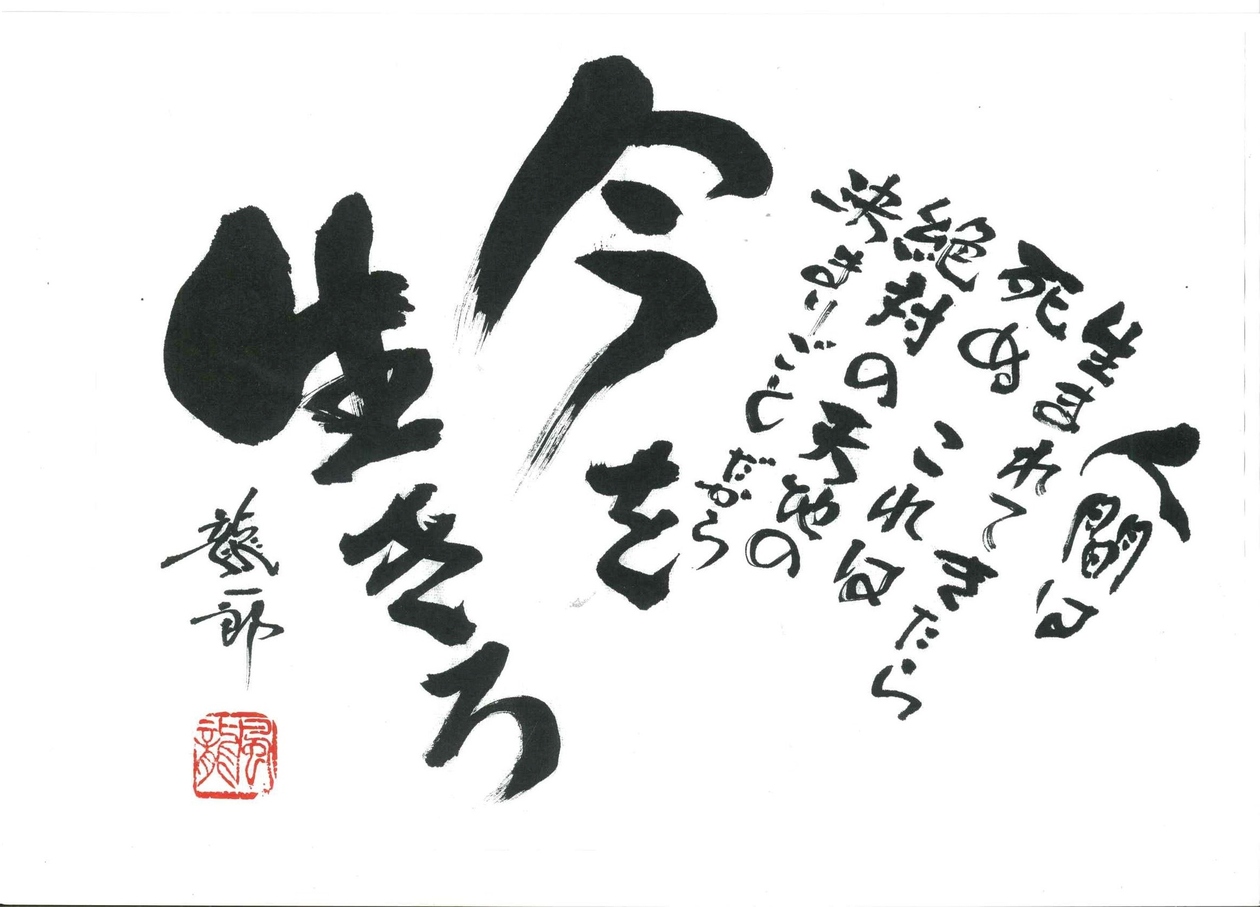 人間は
生まれてきたら
死ぬ これは
絶対の天地の
決まりごとだから
今を
生きろ
龍一郎
風龍